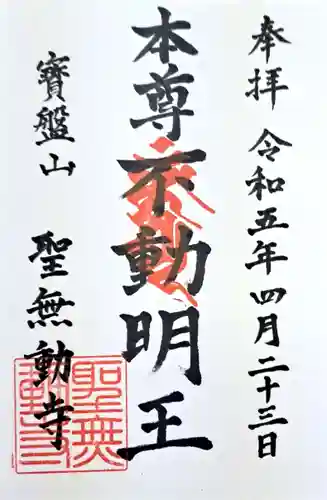 奉拝 令和五年四月二十三日
本尊不動明王
寶盤山 聖無動寺